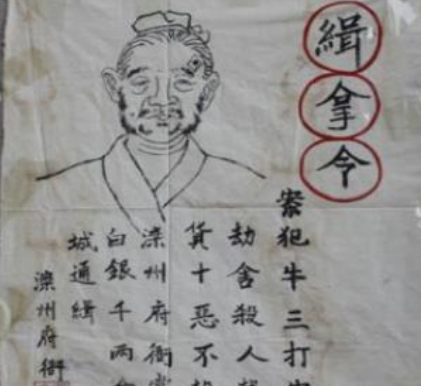 緝拿令
案犯牛三打家
劫舍殺人
貨十惡不
滦州府衙
白銀千两
城通緝
滦州府衙